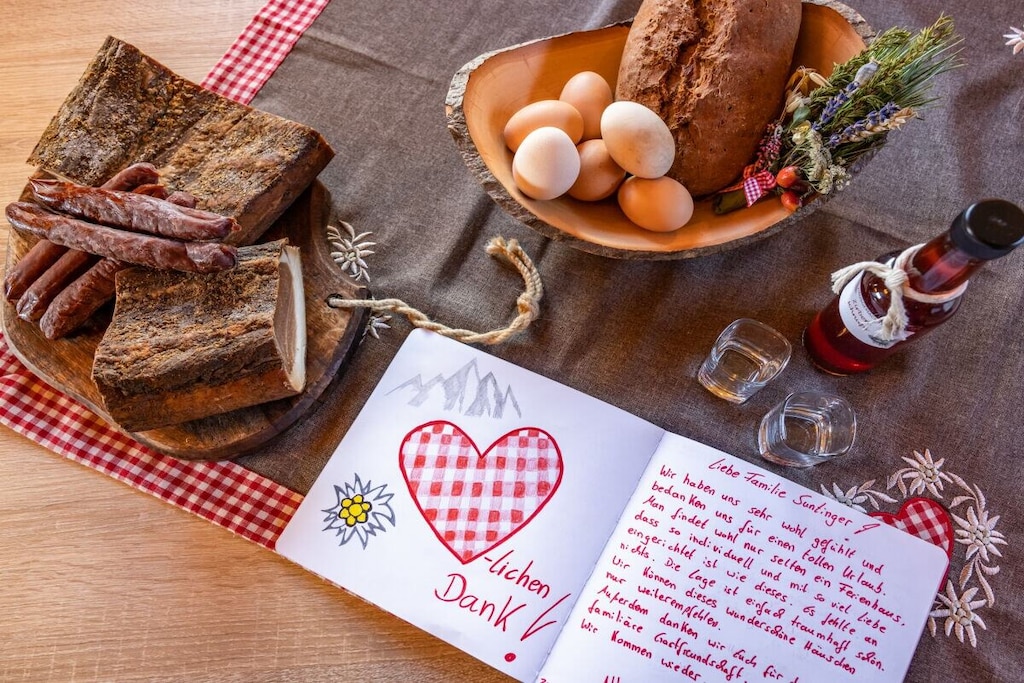 -lichen
Dank!
Liebe Familie Suntinger!
Wir haben uns sehr wohl gefühlt und
bedanken uns für einen tollen Urlaub.
Man findet wohl nur selten ein Ferienhaus,
dass so individuell und mit so viel Liebe
eingerichtet ist wie dieses. Es fehlte an
nichts. Die Lage ist einfach traumhaft schön.
Wir können dieses wunderschöne Häuschen
nur weiterempfehlen.
Außerdem danken wir Euch für d
familiäre Gastfreundschaft
Wir kommen wieder